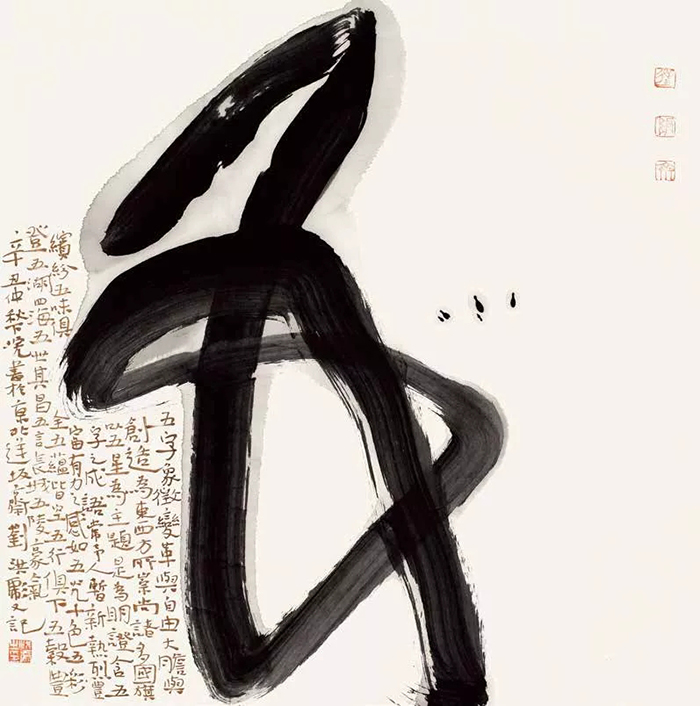 五字象徵變革與自由大膽與
創造為東西方所崇尚諸多國旗
以五星為主題是為明證含五
字之成語常予人暫新熱烈豐
富有力之感如五光十色五彩
繽紛五味俱全五蘊皆空五行俱下五穀豐
登五湖四海五世其昌五言長城五陵豪氣
辛丑仲秋下浣書於京北逆坂齋劉洪彪又記